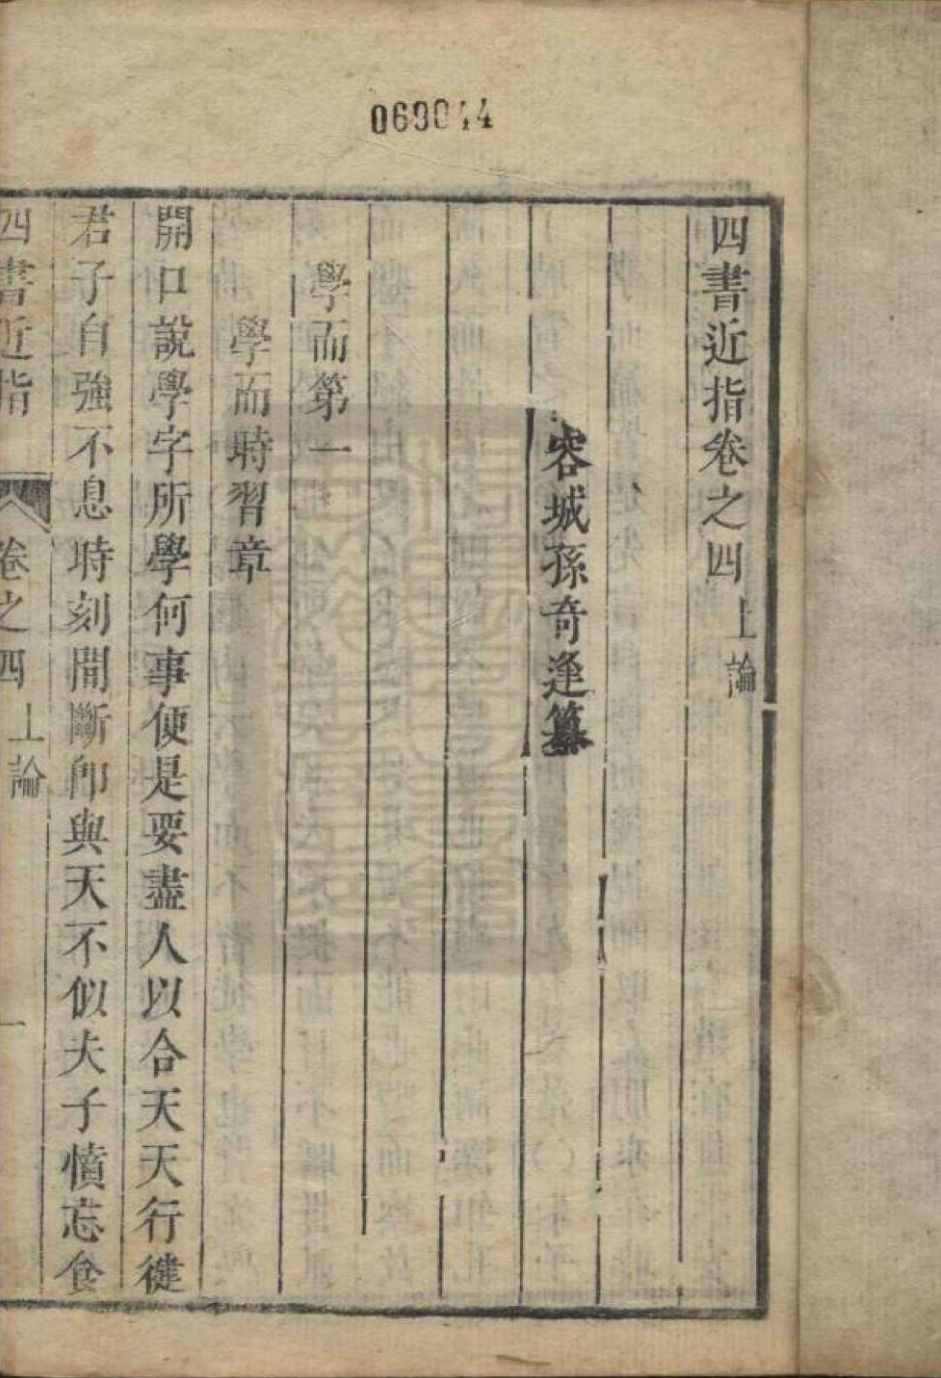 069044
四書近指卷之四 上論
容城孫奇逢纂
學而第一
學而時習章
開口說學字所學何事便是要盡人以合天天行健
君子自強不息時刻間斷卽與天不似夫子憤忘食
四書近指 卷之四 上論 一